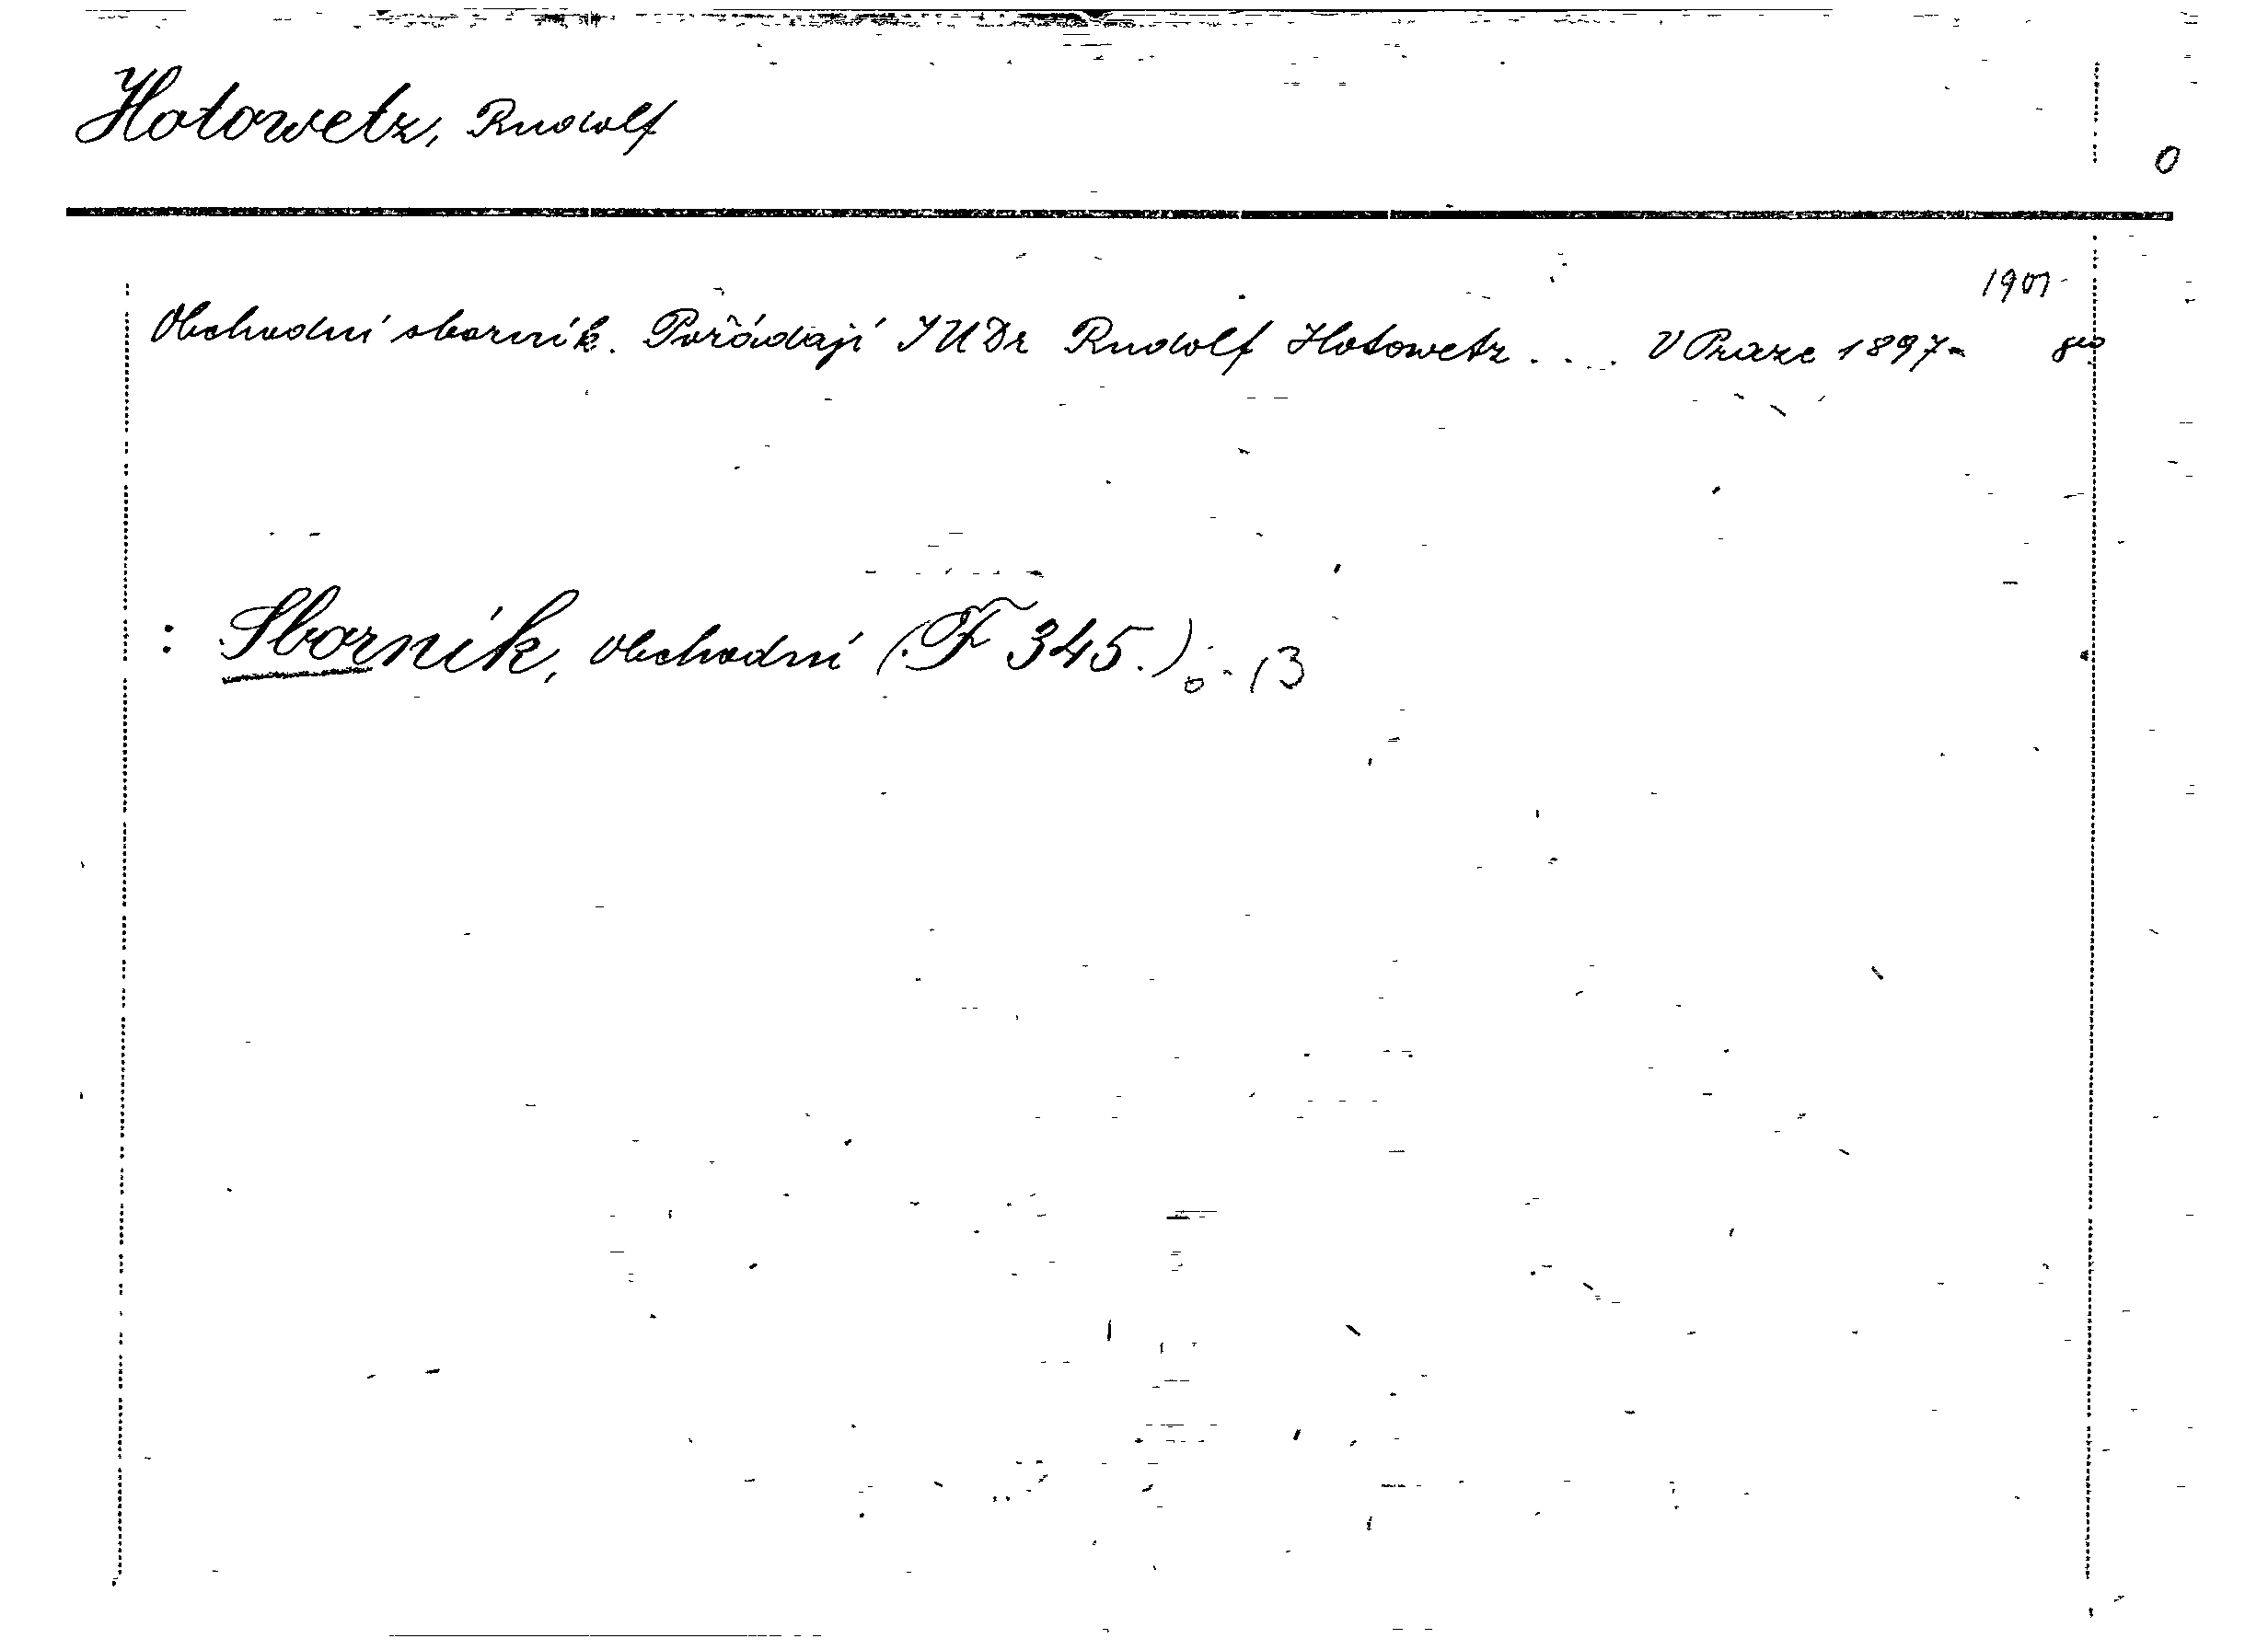 Hotowetz, Rudolf
0
1901
Obchodní sborník. Pořádají JUDr Rudolf Hotowetz .... V Praze 1897- 8º
: Sborník, obchodní (F 345.)